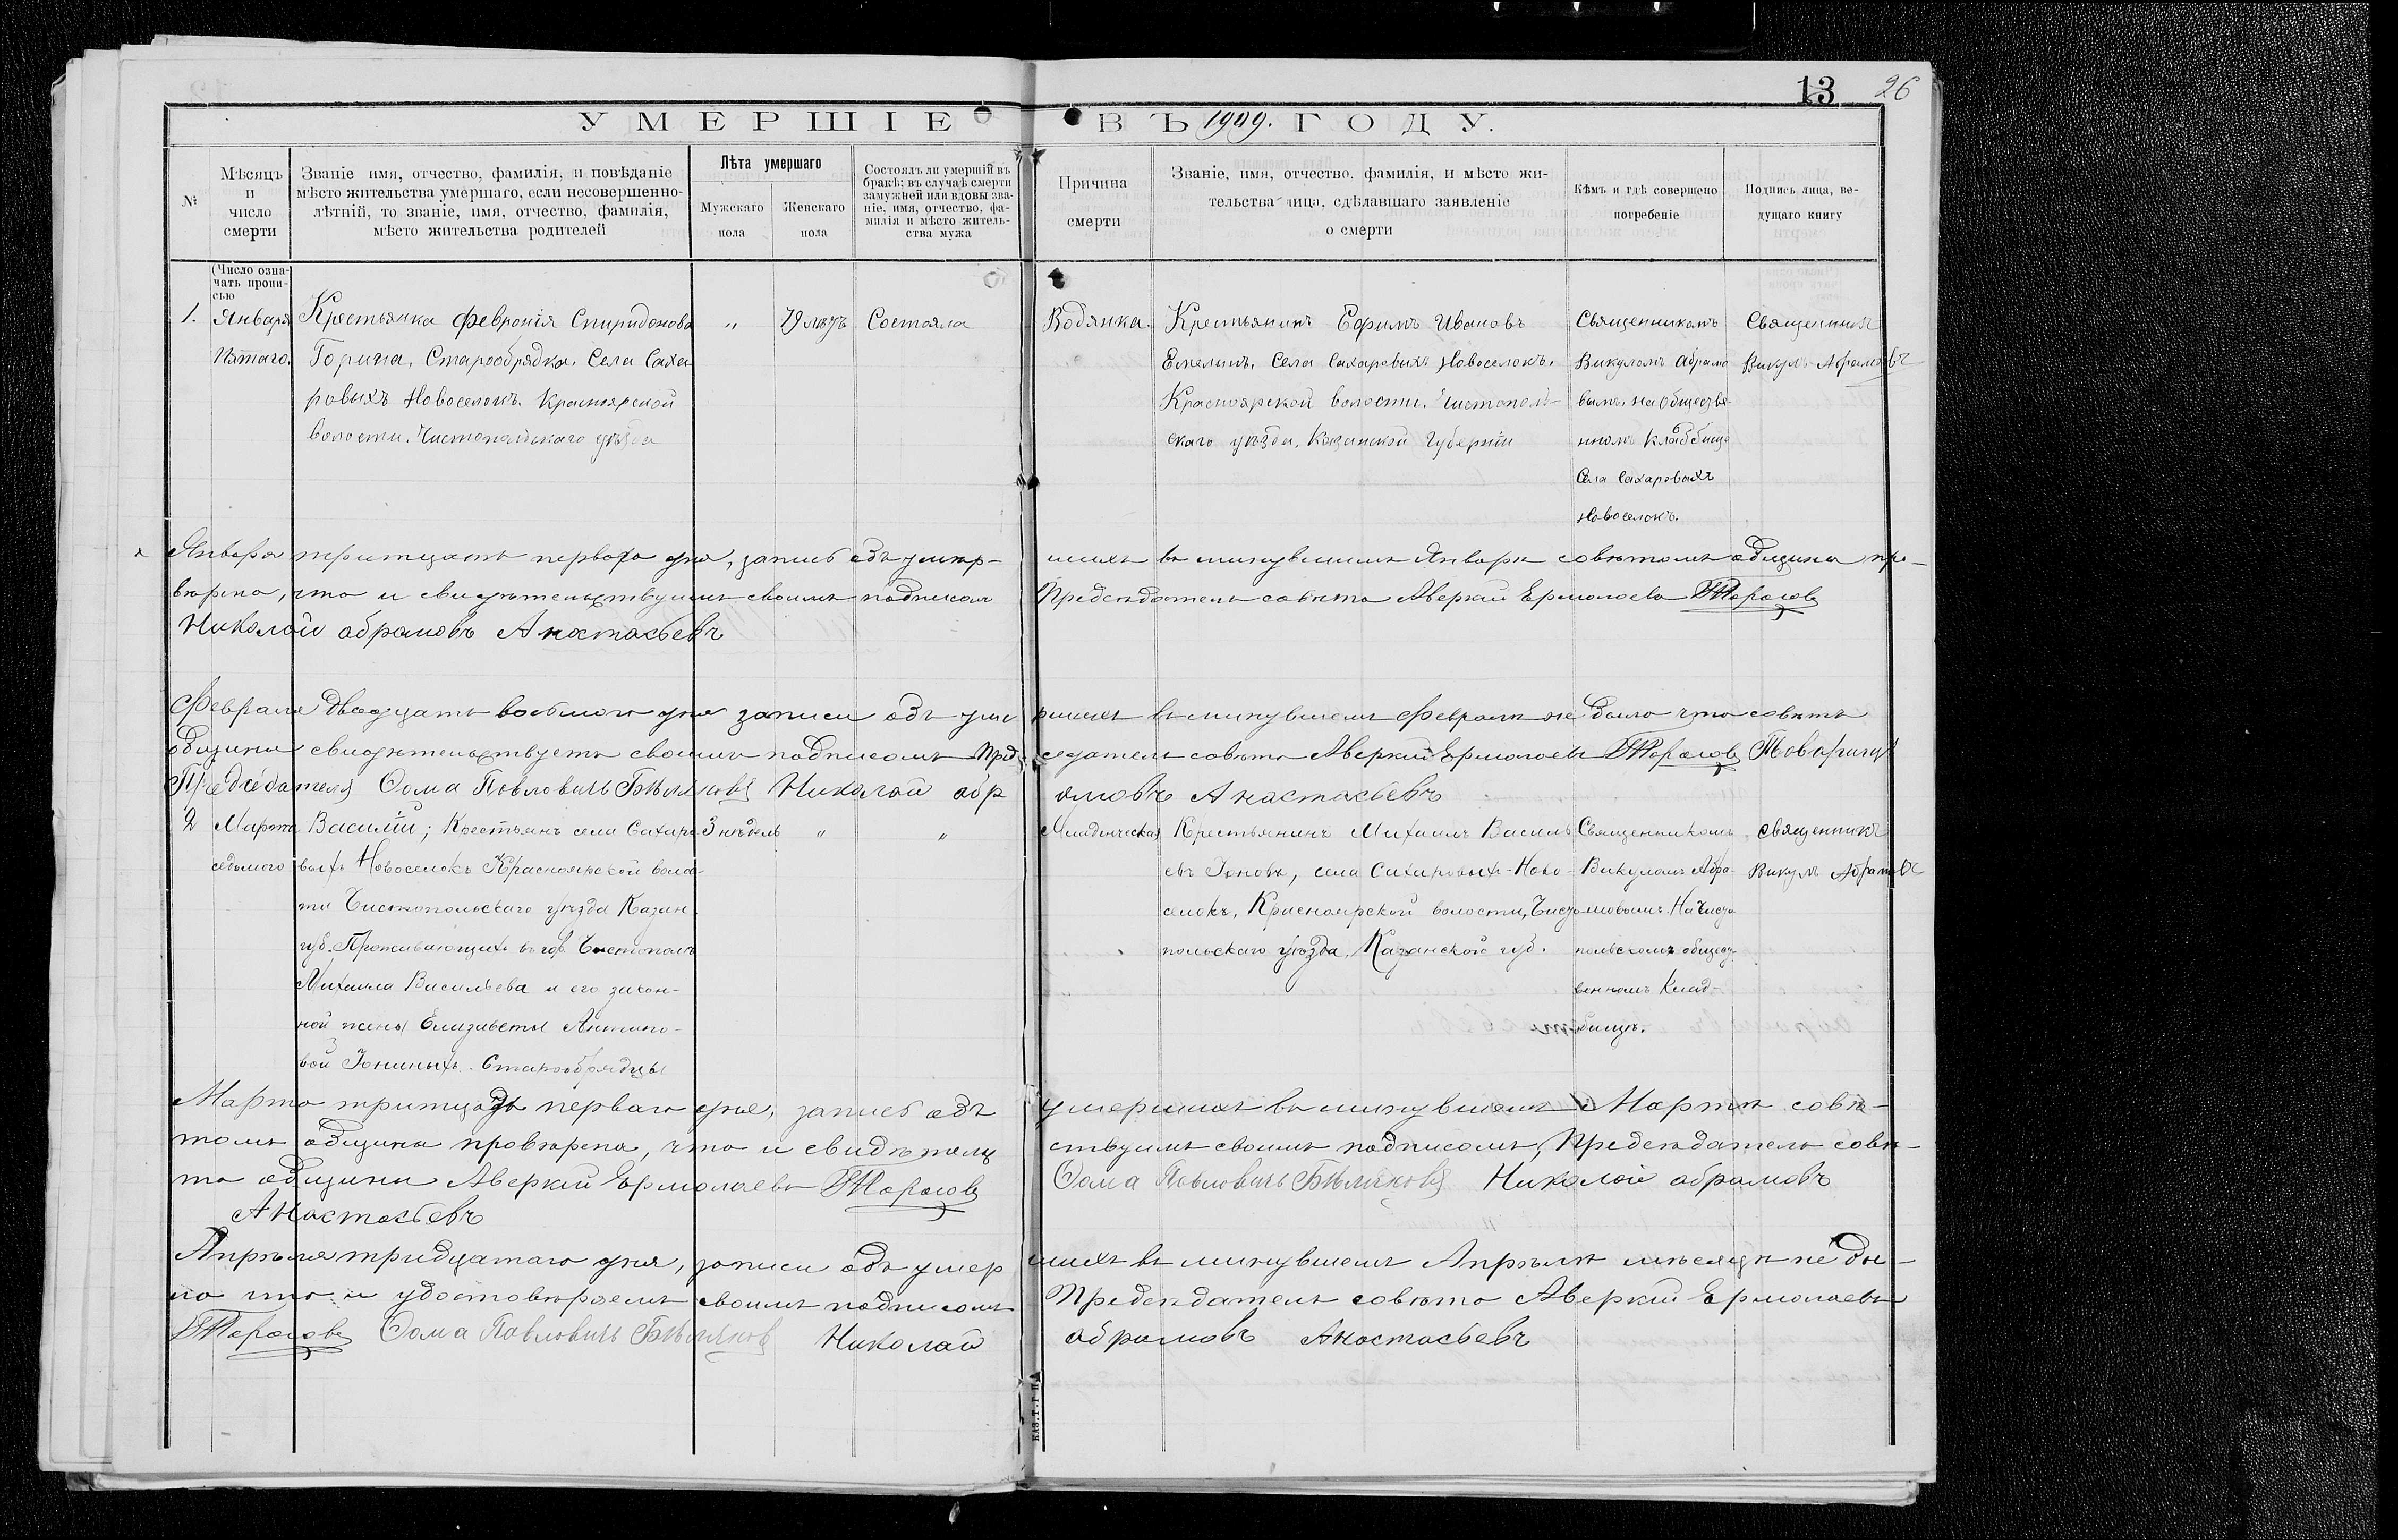 13 26
УМЕРШІЕ ВЪ 1909. ГОДУ.
№
Мѣсяцъ
и
число
смерти
Званіе имя, отчество, фамилія, и повѣданіе
мѣсто жительства умершаго, если несовершенно-
лѣтній, то званіе, имя, отчество, фамилія,
мѣсто жительства родителей
Лѣта умершаго
Мужскаго
пола
Женскаго
пола
Состоялъ ли умершій въ
бракѣ; въ случаѣ смерти
замужней или вдовы зва-
ніе, имя, отчество, фа-
милія и мѣсто житель-
ства мужа
Причина
смерти
Званіе, имя, отчество, фамилія, и мѣсто жи-
тельства лица, сдѣлавшаго заявленіе
о смерти
Кѣмъ и гдѣ совершено
погребеніе
Подпись лица, ве-
дущаго книгу
(Число озна-
чать пропи-
сью
1.
Января
пятаго.
Крестьянка Февронія Спиридонова
Горина, Старообрядка. Села Саха-
ровыхъ Новоселокъ. Красноярской
волости. Чистопольскаго уѣзда
„
79 лѣтъ
Состояла
Водянка.
Крестьянинъ Ефимъ Ивановъ
Емелинъ. Села Сахаровыхъ Новоселокъ.
Красноярской волости. Чистополь-
скаго уѣзда, Казанской Губерніи
Священникомъ
Викуломъ Абрамо
вымъ. на Обществе-
нномъ Кладбище
Села Сахаровыхъ
Новоселокъ.
Священникъ
Викулъ Абрамовъ
Января тритцать перваго дня, запись объ умер- шихъ въ минувшемъ Январѣ совѣтомъ общины про-
вѣрена, что и свидѣтельствуемъ своимъ подписомъ Предсѣдатель совѣта Аверкій Ермолаевъ Тарасовъ
Николай абрамовъ Анастасьевъ
Февраля двадцать восьмого дня записи объ уме ршихъ въ минувшемъ Февралѣ не было что совѣтъ
общины свидѣтельствуетъ своимъ подписомъ Пред- седатель совѣта Аверкій Ермолаевъ Тарасовъ Товарищъ
Предсѣдателя Ѳома Павловичъ Бѣляковъ Николай абр амовъ Анастасьевъ
2
Марта
седьмого
Василій; Крестьянъ села Сахаро-
выхъ Новоселокъ Красноярской волос-
ти Чистопольскаго уѣзда Казан.
губ. Проживающихъ въ гор. Чистополѣ
Михаила Васильева и его закон-
ной жены Елизаветы Антипо-
вой Іониныхъ. Старообрядцы
3 недѣль
„
„
Младенческая
Крестьянинъ Михаилъ Василь
евъ Іоновъ, села Сахаровыхъ-Ново-
селокъ, Красноярской волости, Чисто
польскаго уѣзда, Казанской губ.
Священникомъ
Викуломъ Абра-
мовымъ. На Чисто
польскомъ общест
венномъ Клад-
бищѣ.
Священникъ
Викулъ Абрамовъ
Марта тритцать перваго дня, запись объ умершихъ въ минувшемъ Мартѣ совѣ-
томъ общины провѣрена, что и свидѣтель ствуемъ своимъ подписомъ, Предсѣдатель совѣ-
та общины Аверкій Ермолаевъ Тарасовъ Ѳома Павловичъ Бѣляковъ Николай абрамовъ
Анастасьевъ
Апрѣля тридцатаго дня, записи объ умер шихъ въ минувшемъ Апрѣлѣ мѣсяцѣ не бы-
ло что и удостовѣряемъ своимъ подписомъ Предсѣдатель совѣта Аверкій Ермолаевъ
Тарасовъ Ѳома Павловичъ Бѣляковъ Николай абрамовъ Анастасьевъ
КАЗ.Т.Г.П.